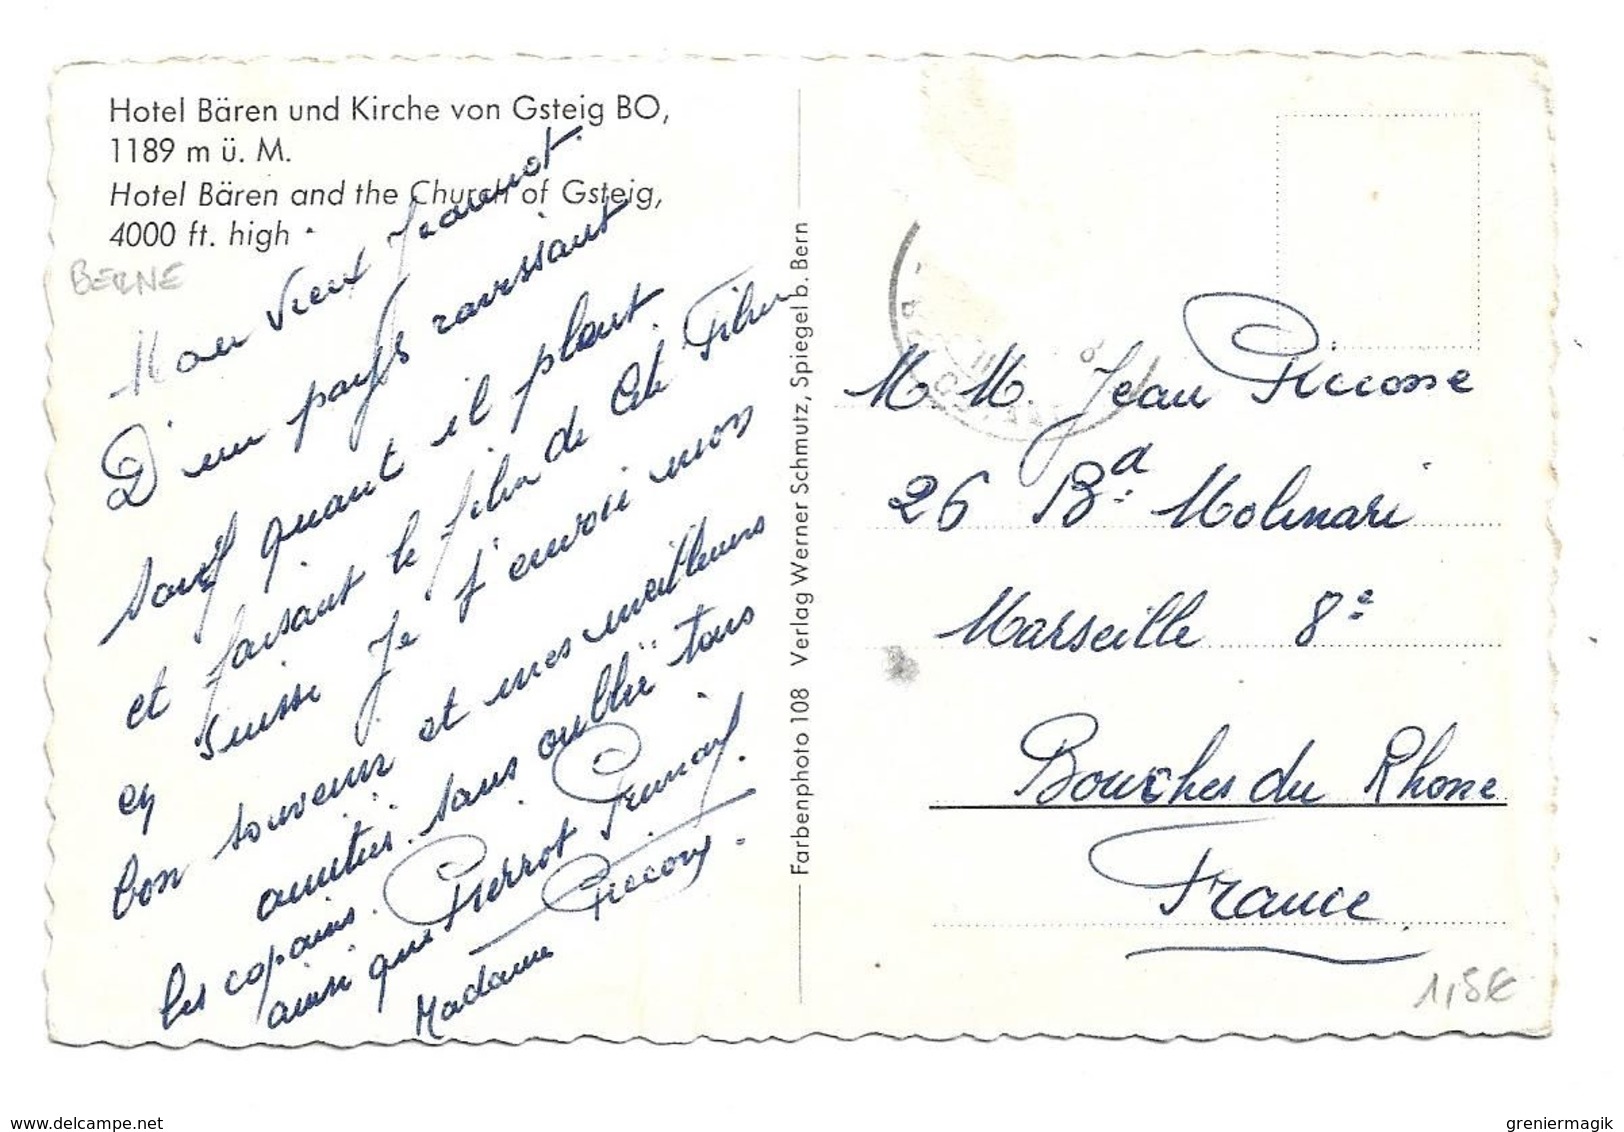 Hotel Bären und Kirche von Gsteig BO,
1189 m ü. M.
Hotel Bären and the Church of Gsteig,
4000 ft. high
BERNE
Mon vieux Jeannot.
D'un pays ravissant
sauf quant il pleut
et faisant le film de Cité Film
en Suisse je t'envoie mon
bon souvenir et mes meilleurs
amitiés. sans oublié tous
les copains. Pierrot
ainsi que
Madame
Farbenphoto 108 Verlag Werner Schmutz, Spiegel b. Bern
M. M. Jean
26 Bd Molinari
Marseille 8e
Bouches du Rhone
France
1,5€
delcampe.net
greniermagik